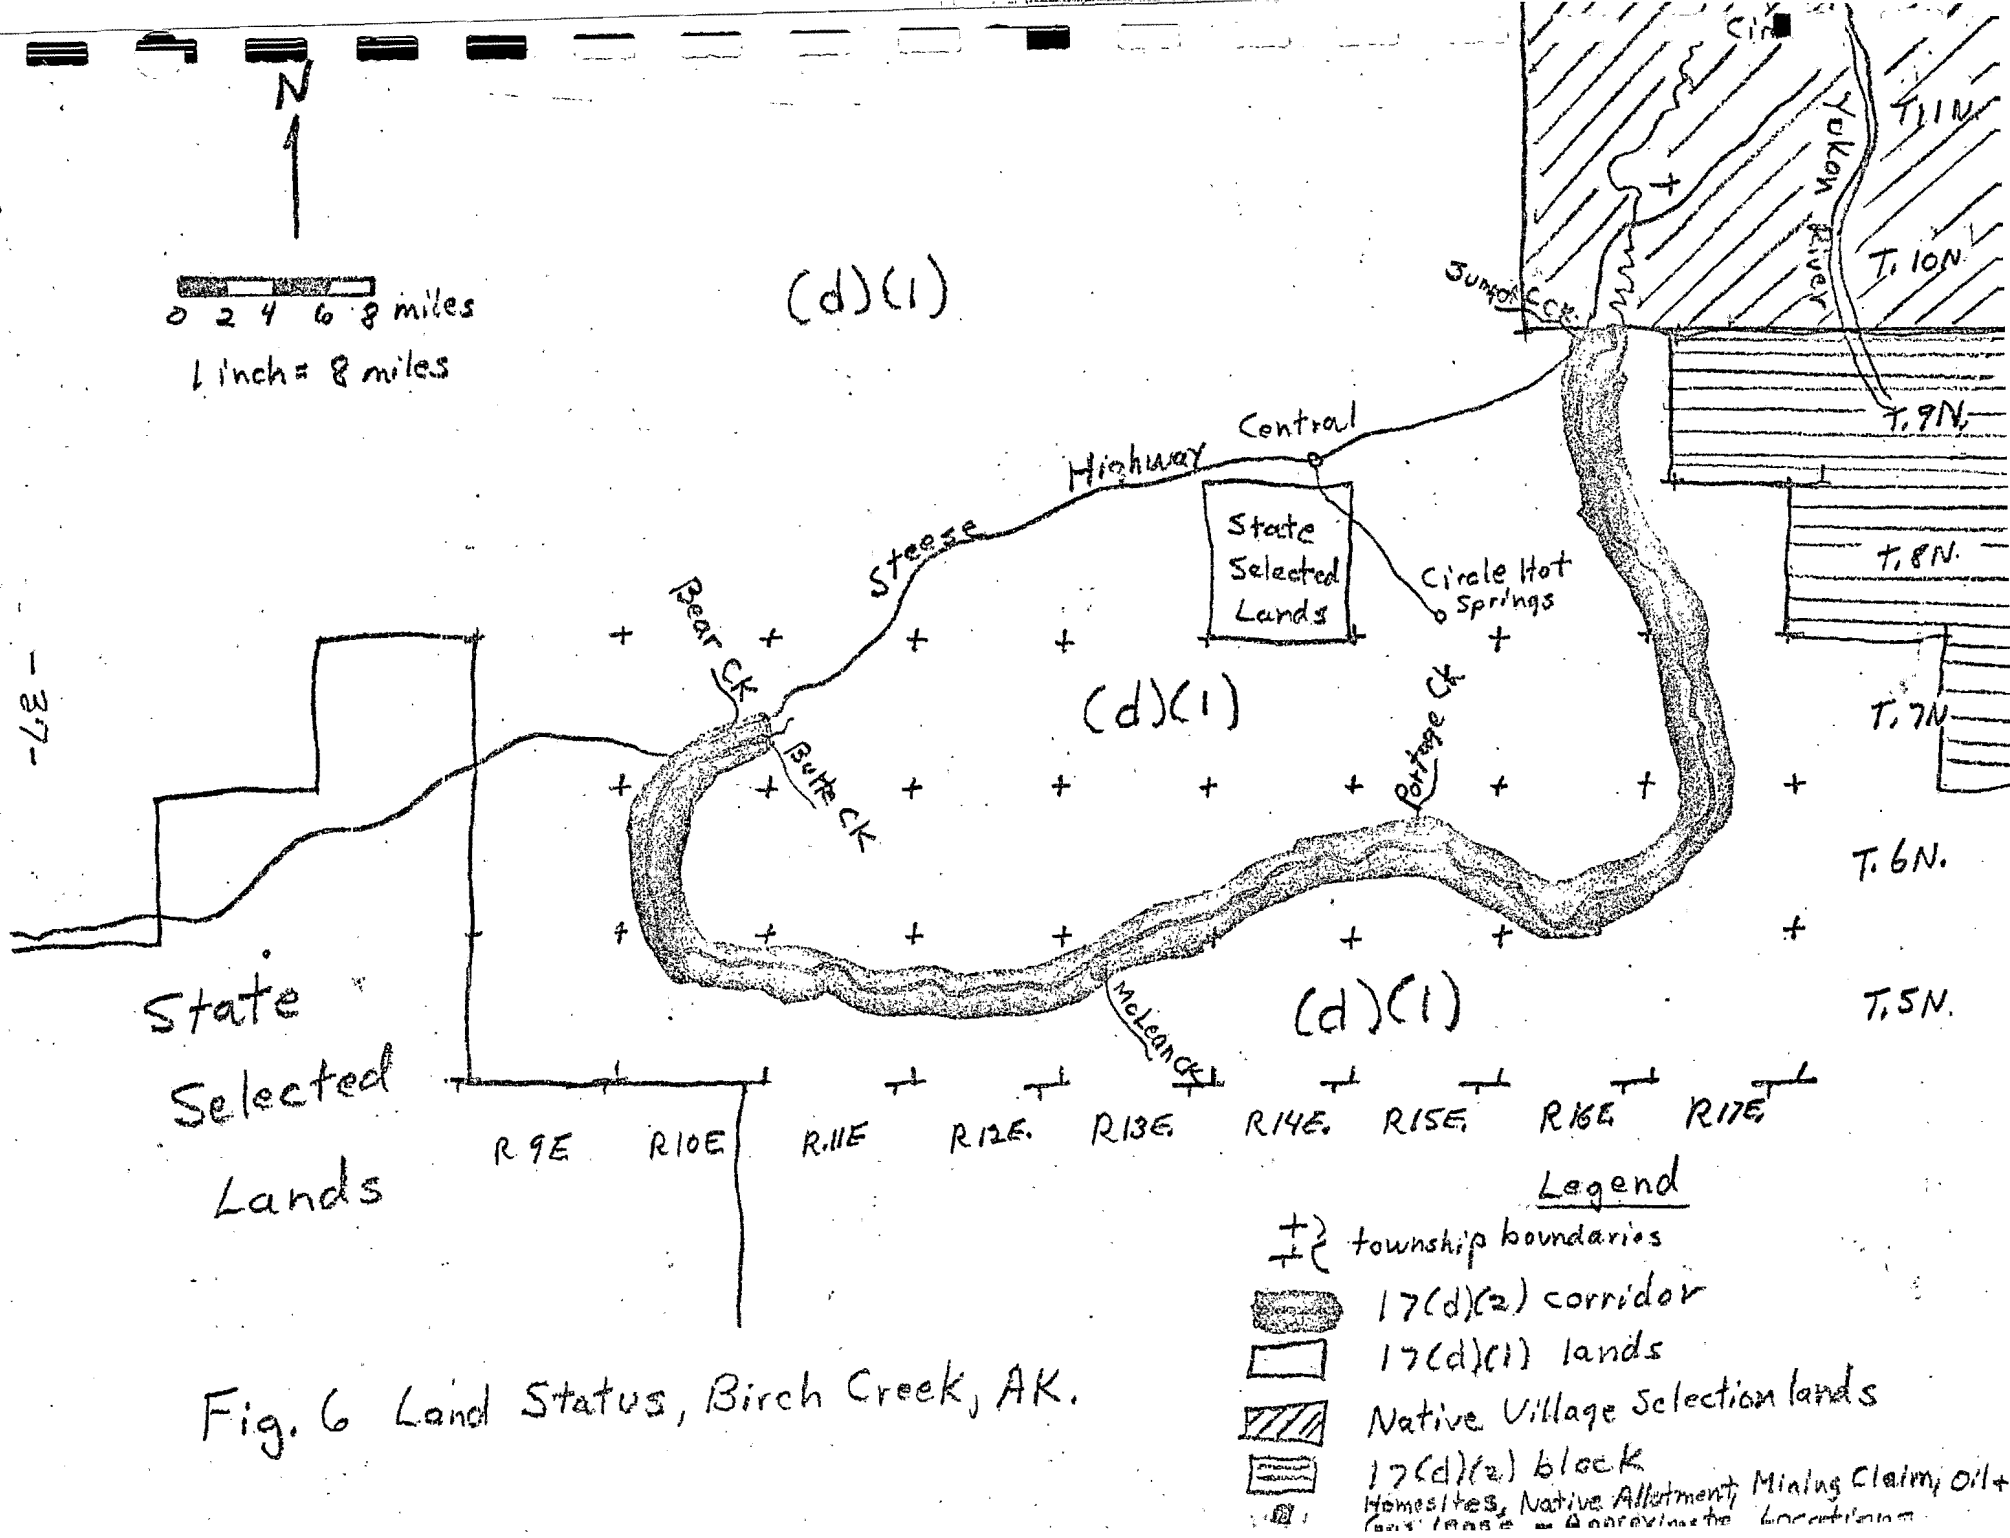 N
0 2 4 6 8 miles
1 inch = 8 miles
(d)(1)
Yukon River
T.11N.
T.10N
T.9N.
T.8N.
T.7N
T.6N.
T.5N.
Central
Steese Highway
State
Selected
Lands
Circle Hot
Springs
Bear CK
Butte CK
(d)(1)
Portage CK
McLean CK
(d)(1)
-37-
State
Selected
Lands
R 9E R10E R.11E R12E. R13E. R14E. R15E. R16E R17E
Legend
township boundaries
17(d)(2) corridor
17(d)(1) lands
Native Village Selection lands
17(d)(2) block
Homesites, Native Allotment, Mining Claim, Oil +
Approximate Locations
Fig. 6 Land Status, Birch Creek, AK.